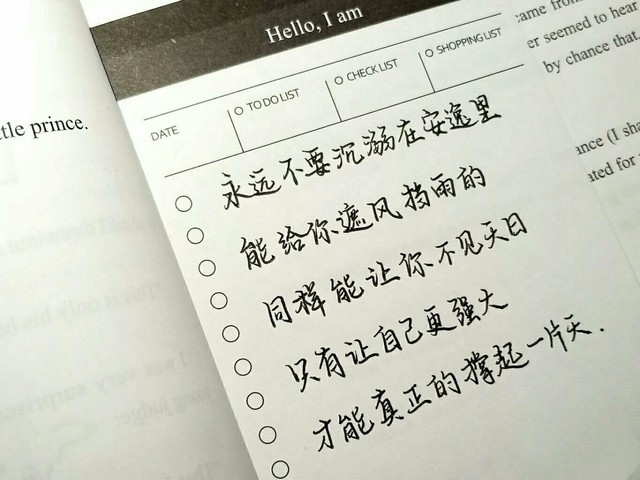 Hello, I am
DATE
TO DO LIST
CHECK LIST
SHOPPING LIST
永远不要沉溺在安逸里
能给你遮风挡雨的
同样能让你不见天日
只有让自己更强大
才能真正的撑起一片天.
ttle prince.
came from
er seemed to hear
by chance that
ance (I sha
ated for